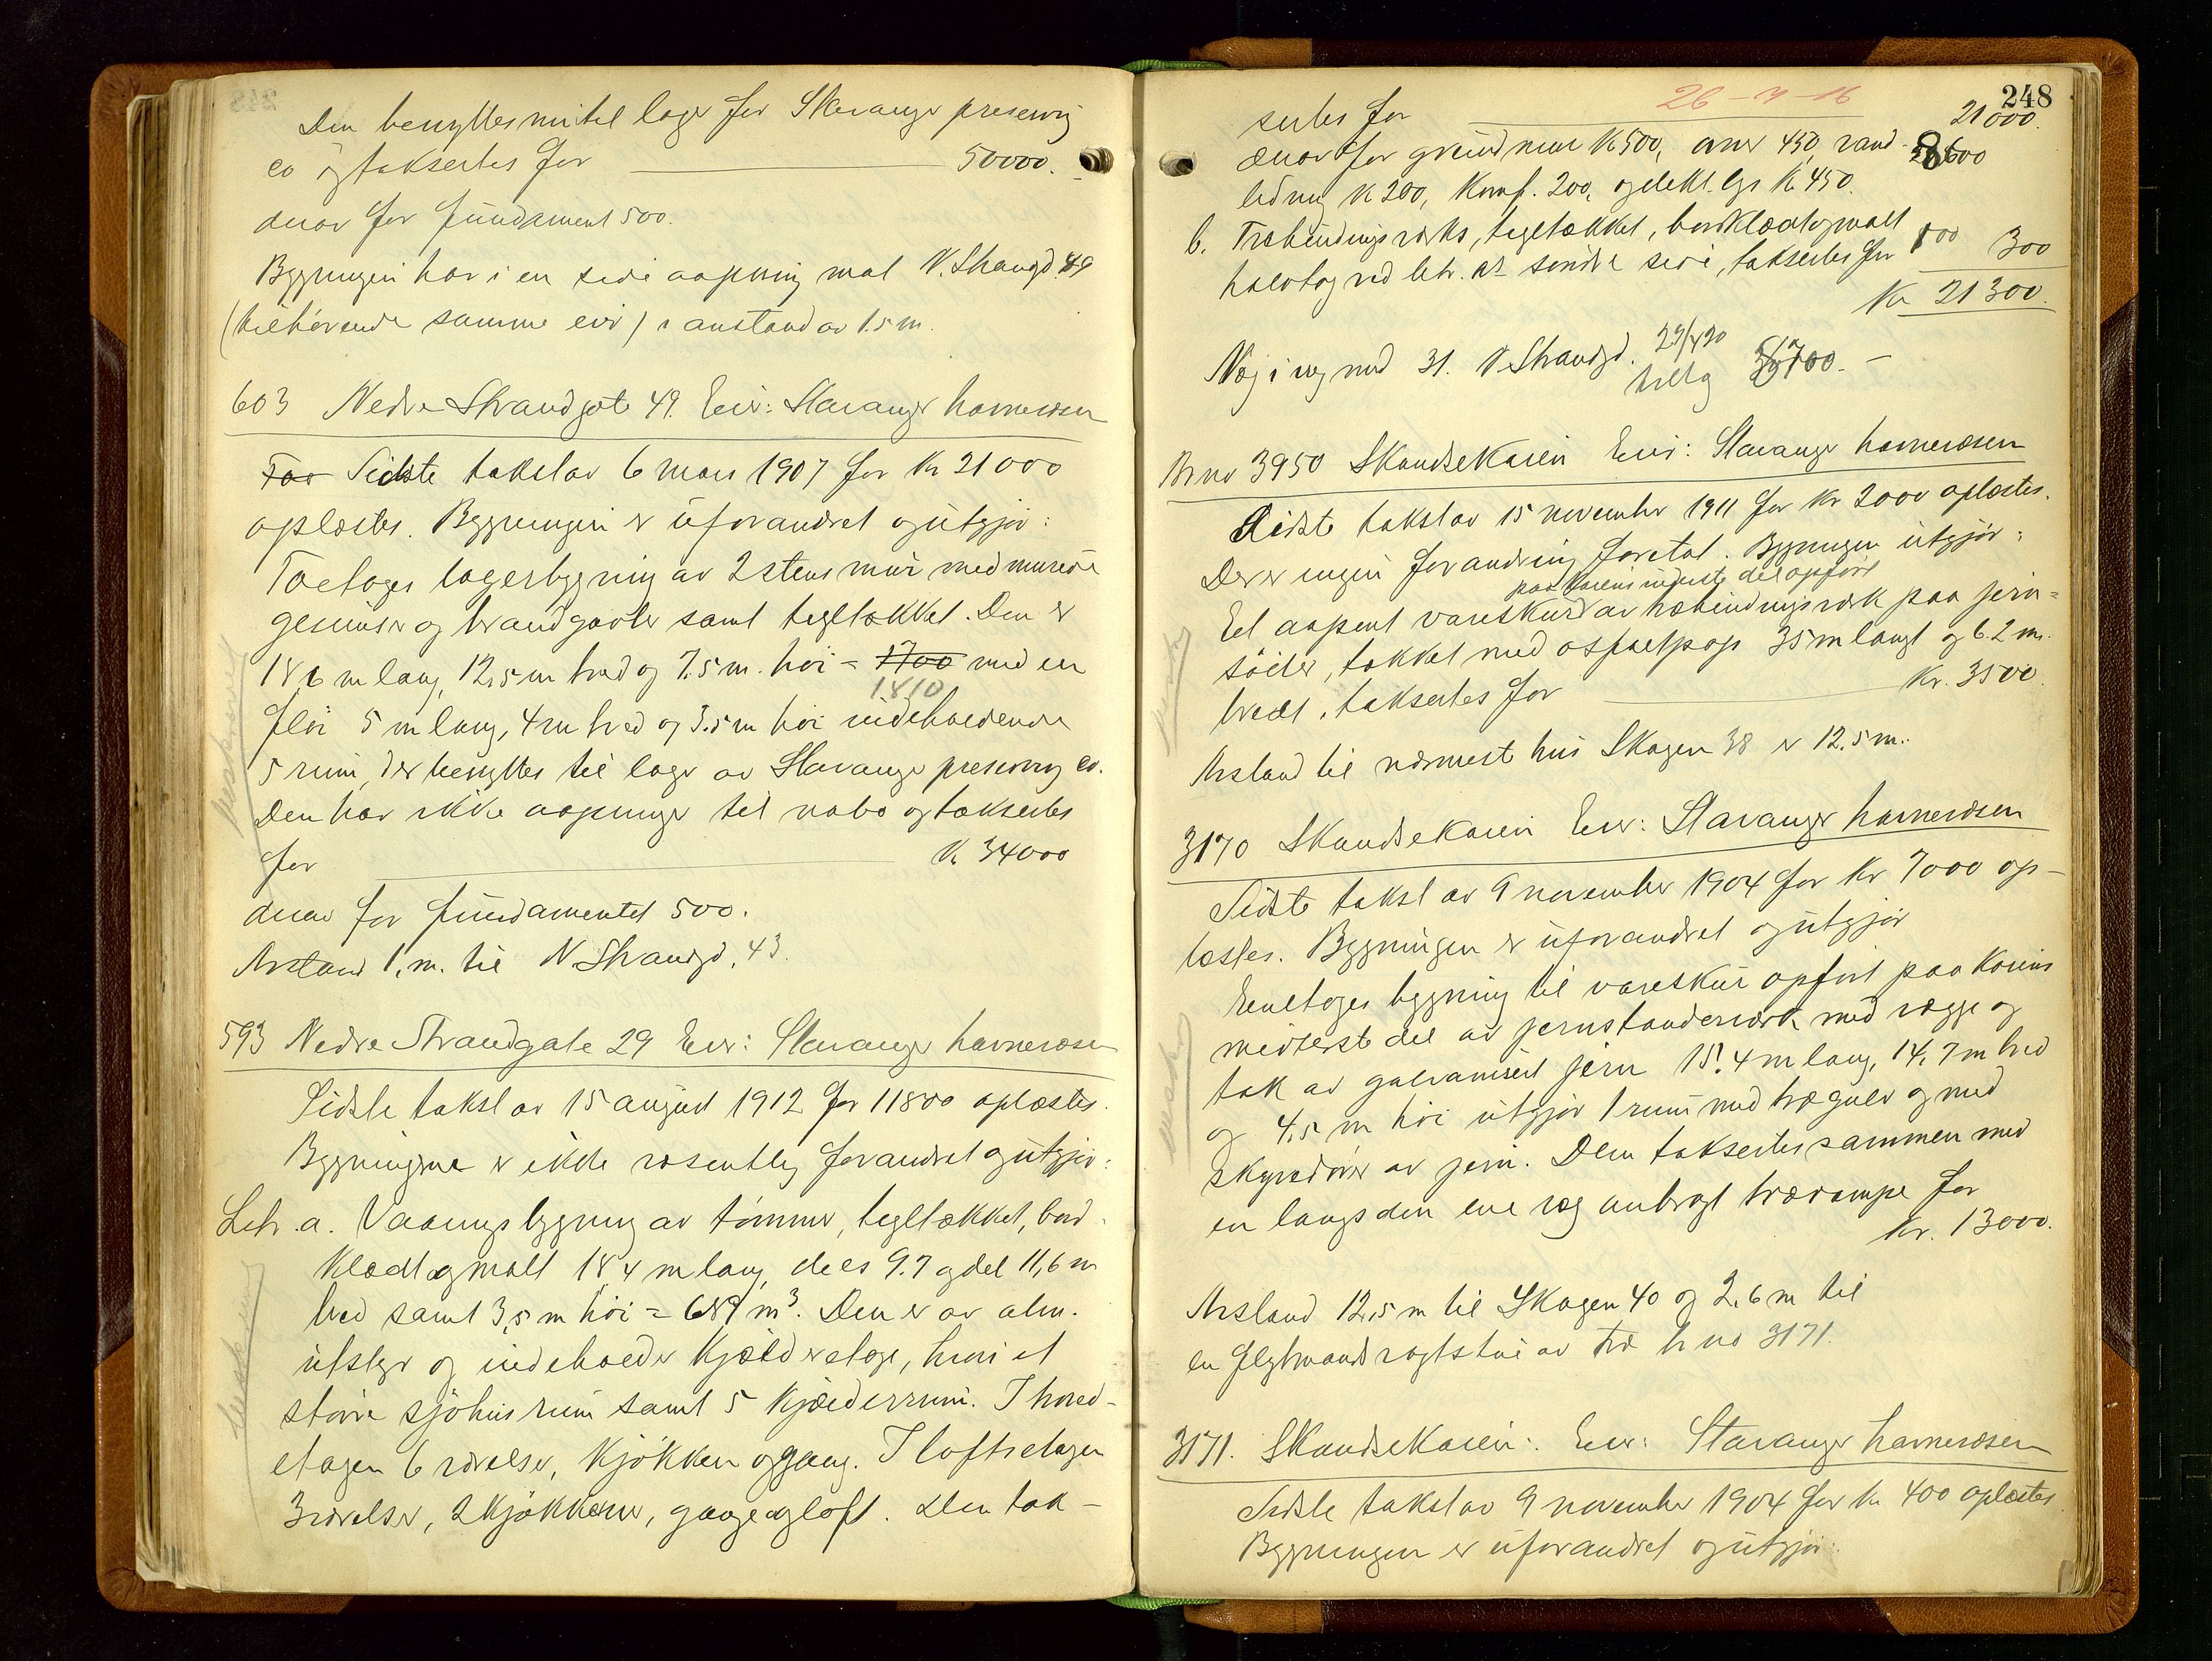 Den benyttes nu til lager for Stavanger preserving
co og taksertes for 50000.
derav for fundament 500.
Bygningen har i en side aapning mot N. Strandgd. 49
(tilhørende samme eier) i avstand av 1.5 m.
603 Nedre Strandgate 49. Eier: Stavanger havnevæsen
Sidste takst av 6 mars 1907 for Kr 21000
oplæstes. Bygningen er uforandret og utgjør:
Toetages lagerbygning av 2 stens mur med murede
gesimser og brandgavler samt tegltækket. Den er
18,6 m lang, 12,5 m bred og 7.5 m. høi = 1700 med en
1810
fløi 5 m lang, 4 m bred og 3.5 m høi indeholdende
5 rum, der benyttes til lager av Stavanger preserving co.
Den har ikke aapninger til nabo og taksertes
for K. 34000
derav for fundamentet 500.
Avstand 1, m. til N Strandgd. 43.
593 Nedre Strandgate 29 Eier: Stavanger havnevæsen
Sidste takst av 15 august 1912 for 11800 oplæstes.
Bygningerne er ikke væsentlig forandret og utgjør:
Litr. a. Vaaningsbygning av tømmer, tegltækket, bord-
klædt og malt 18,4 m lang, dels 9.7 og del 11,6 m
bred samt 3,5 m høi = 689 m³. Den er av alm.
utstyr og indeholder Kjælderetage, hvori et
større sjøhusrum samt 5 Kjælderrum. I hoved-
etagen 6 værelser, Kjøkken og gang. I loftsetagen
3 værelser, 2 Kjøkkener, gange og loft. Den tak-
248
26-4-16
sertes for 21000.
derav for grundmur K 500, ovner 450, vand- 8600
ledning K 200, Komf. 200, og elekt. lys K 450.
b. Træbindingsverks, tegltækket, bordklædt og malt
halvtag ved litr. a's søndre side, taksertes for 300
Kr 21300.
Væg i væg med 31. N Strandgd. 29/4 20
tillæg
Br no 3950 Skandsekaien Eier: Stavanger havnevæsen
Sidste takst av 15 november 1911 for Kr 2000 oplæstes.
Der er ingen forandring foretat. Bygningen utgjør:
paa Kaiens inderste del opført
Et aapent vareskur av træbindingsverk paa jern-
søiler, tækket med asfaltpap 35 m langt og 6.2 m.
bredt, taksertes for Kr. 3500.
Avstand til nærmest hus Skagen 38 er 12.5 m.
3170 Skandsekaien Eier: Stavanger havnevæsen
Sidste takst av 9 november 1904 for Kr 7000 op-
læstes. Bygningen er uforandret og utgjør
Eenetages bygning til vareskur opført paa Kaiens
midterste del av jernstanderverk med vægge og
tak av galvanisert jern 15.4 m lang, 14.7 m bred
og 4.5 m høi utgjør 1 rum med trægulv og med
skyvedører av jern. Den taksertes sammen med
en langs den ene væg anbragt trærampe for
Kr. 13000.
Avstand 12.5 m til Skagen 40 og 2.6 m til
en av træ br no 3171.
3171. Skandsekaien: Eier: Stavanger havnevæsen
Sidste takst av 9 november 1904 for Kr 400 oplæstes
Bygningen er uforandret og utgjør: